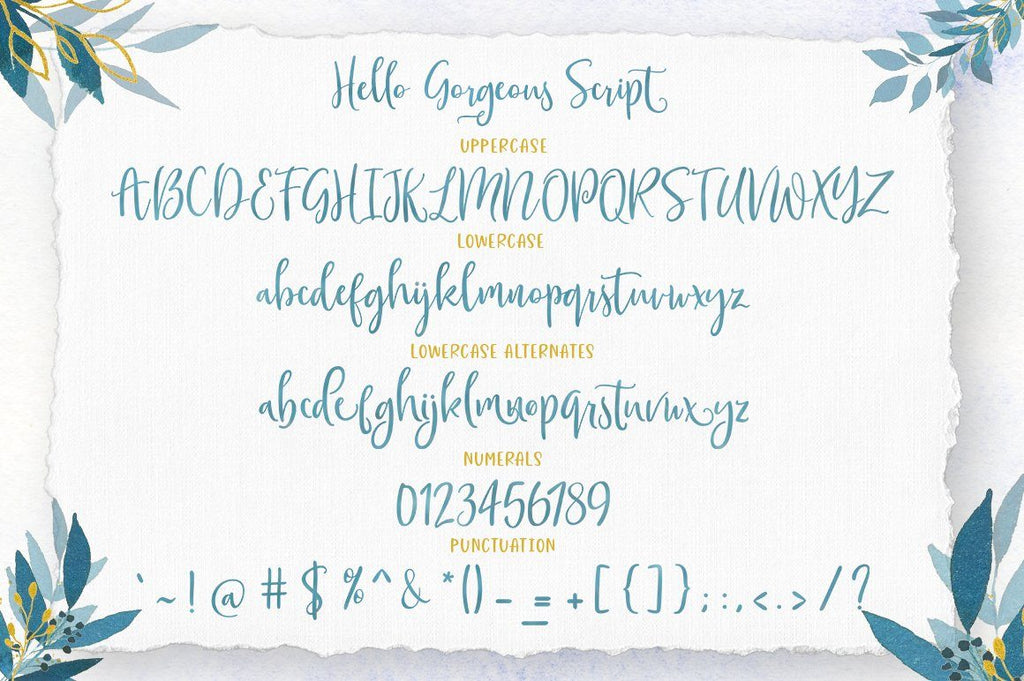 Hello Gorgeous Script
UPPERCASE
ABCDEFGHIJKLMNOPQRSTUVWXYZ
LOWERCASE
abcdefghijklmnopqrstuvwxyz
LOWERCASE ALTERNATES
abcdefghijklmnopqrstuvwxyz
NUMERALS
0123456789
PUNCTUATION
` ~ ! @ # $ % ^ & * ( ) - _ = + [ { ] } ; : , < . > / ?